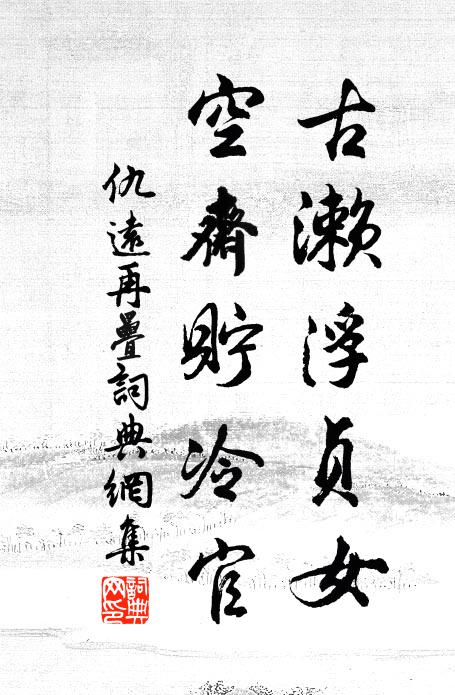 古瀨浮貞女
空齋貯冷官
仇遠再疊詞典網集